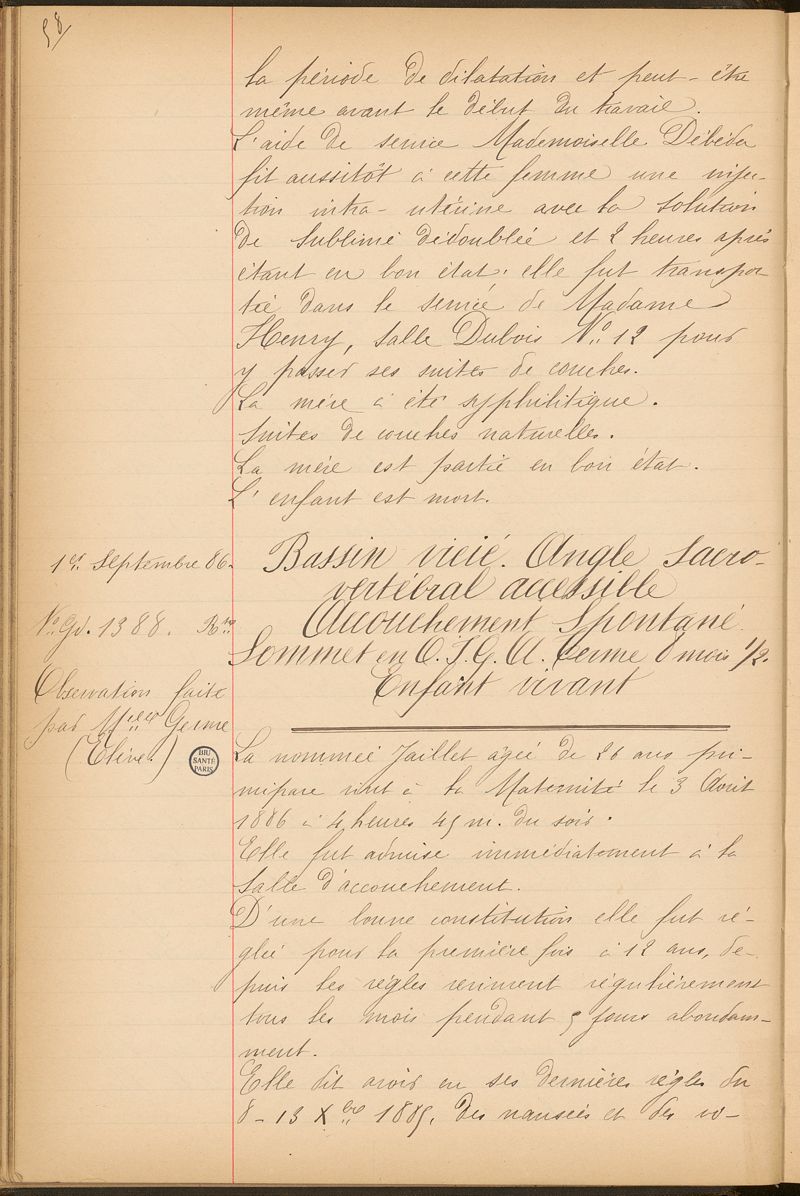 58/
la période de dilatation et peut-être
même avant le début du travail.
L'aide de service Mademoiselle Débéda
fit aussitôt à cette femme une injec-
tion intra-utérine avec la solution
de sublimé dédoublée et 2 heures après
étant en bon état, elle fut transpor
tée dans le service de Madame
Henry, salle Dubois No. 12 pour
y passer ses suites de couches.
La mère à été syphilitique.
Suites de couches naturelles.
La mère est partie en bon état.
L'enfant est mort.
1er Septembre 86.
No. Gd. 1388.
Observation faite
par Melle Germe
(Elève.)
BIU
SANTE
PARIS
Bassin vicié. Angle sacro-
vertébral accessible
Accouchement Spontané.
Sommet en O.I.G.A. Terme 8 mois 1/2.
Enfant vivant
La nommée Jaillet âgée de 26 ans pri-
mipare vint à la Maternité le 3 Avril
1886 à 4 heures 45 m. du soir.
Elle fut admise immédiatement à la
salle d'accouchement.
D'une bonne constitution elle fut ré-
glée pour la première fois à 12 ans, de-
puis les règles revinrent régulièrement
tous les mois pendant 5 jours abondam-
ment.
Elle dit avoir eu ses dernières règles du
8-13 Xbre 1885. des nausées et des vo-